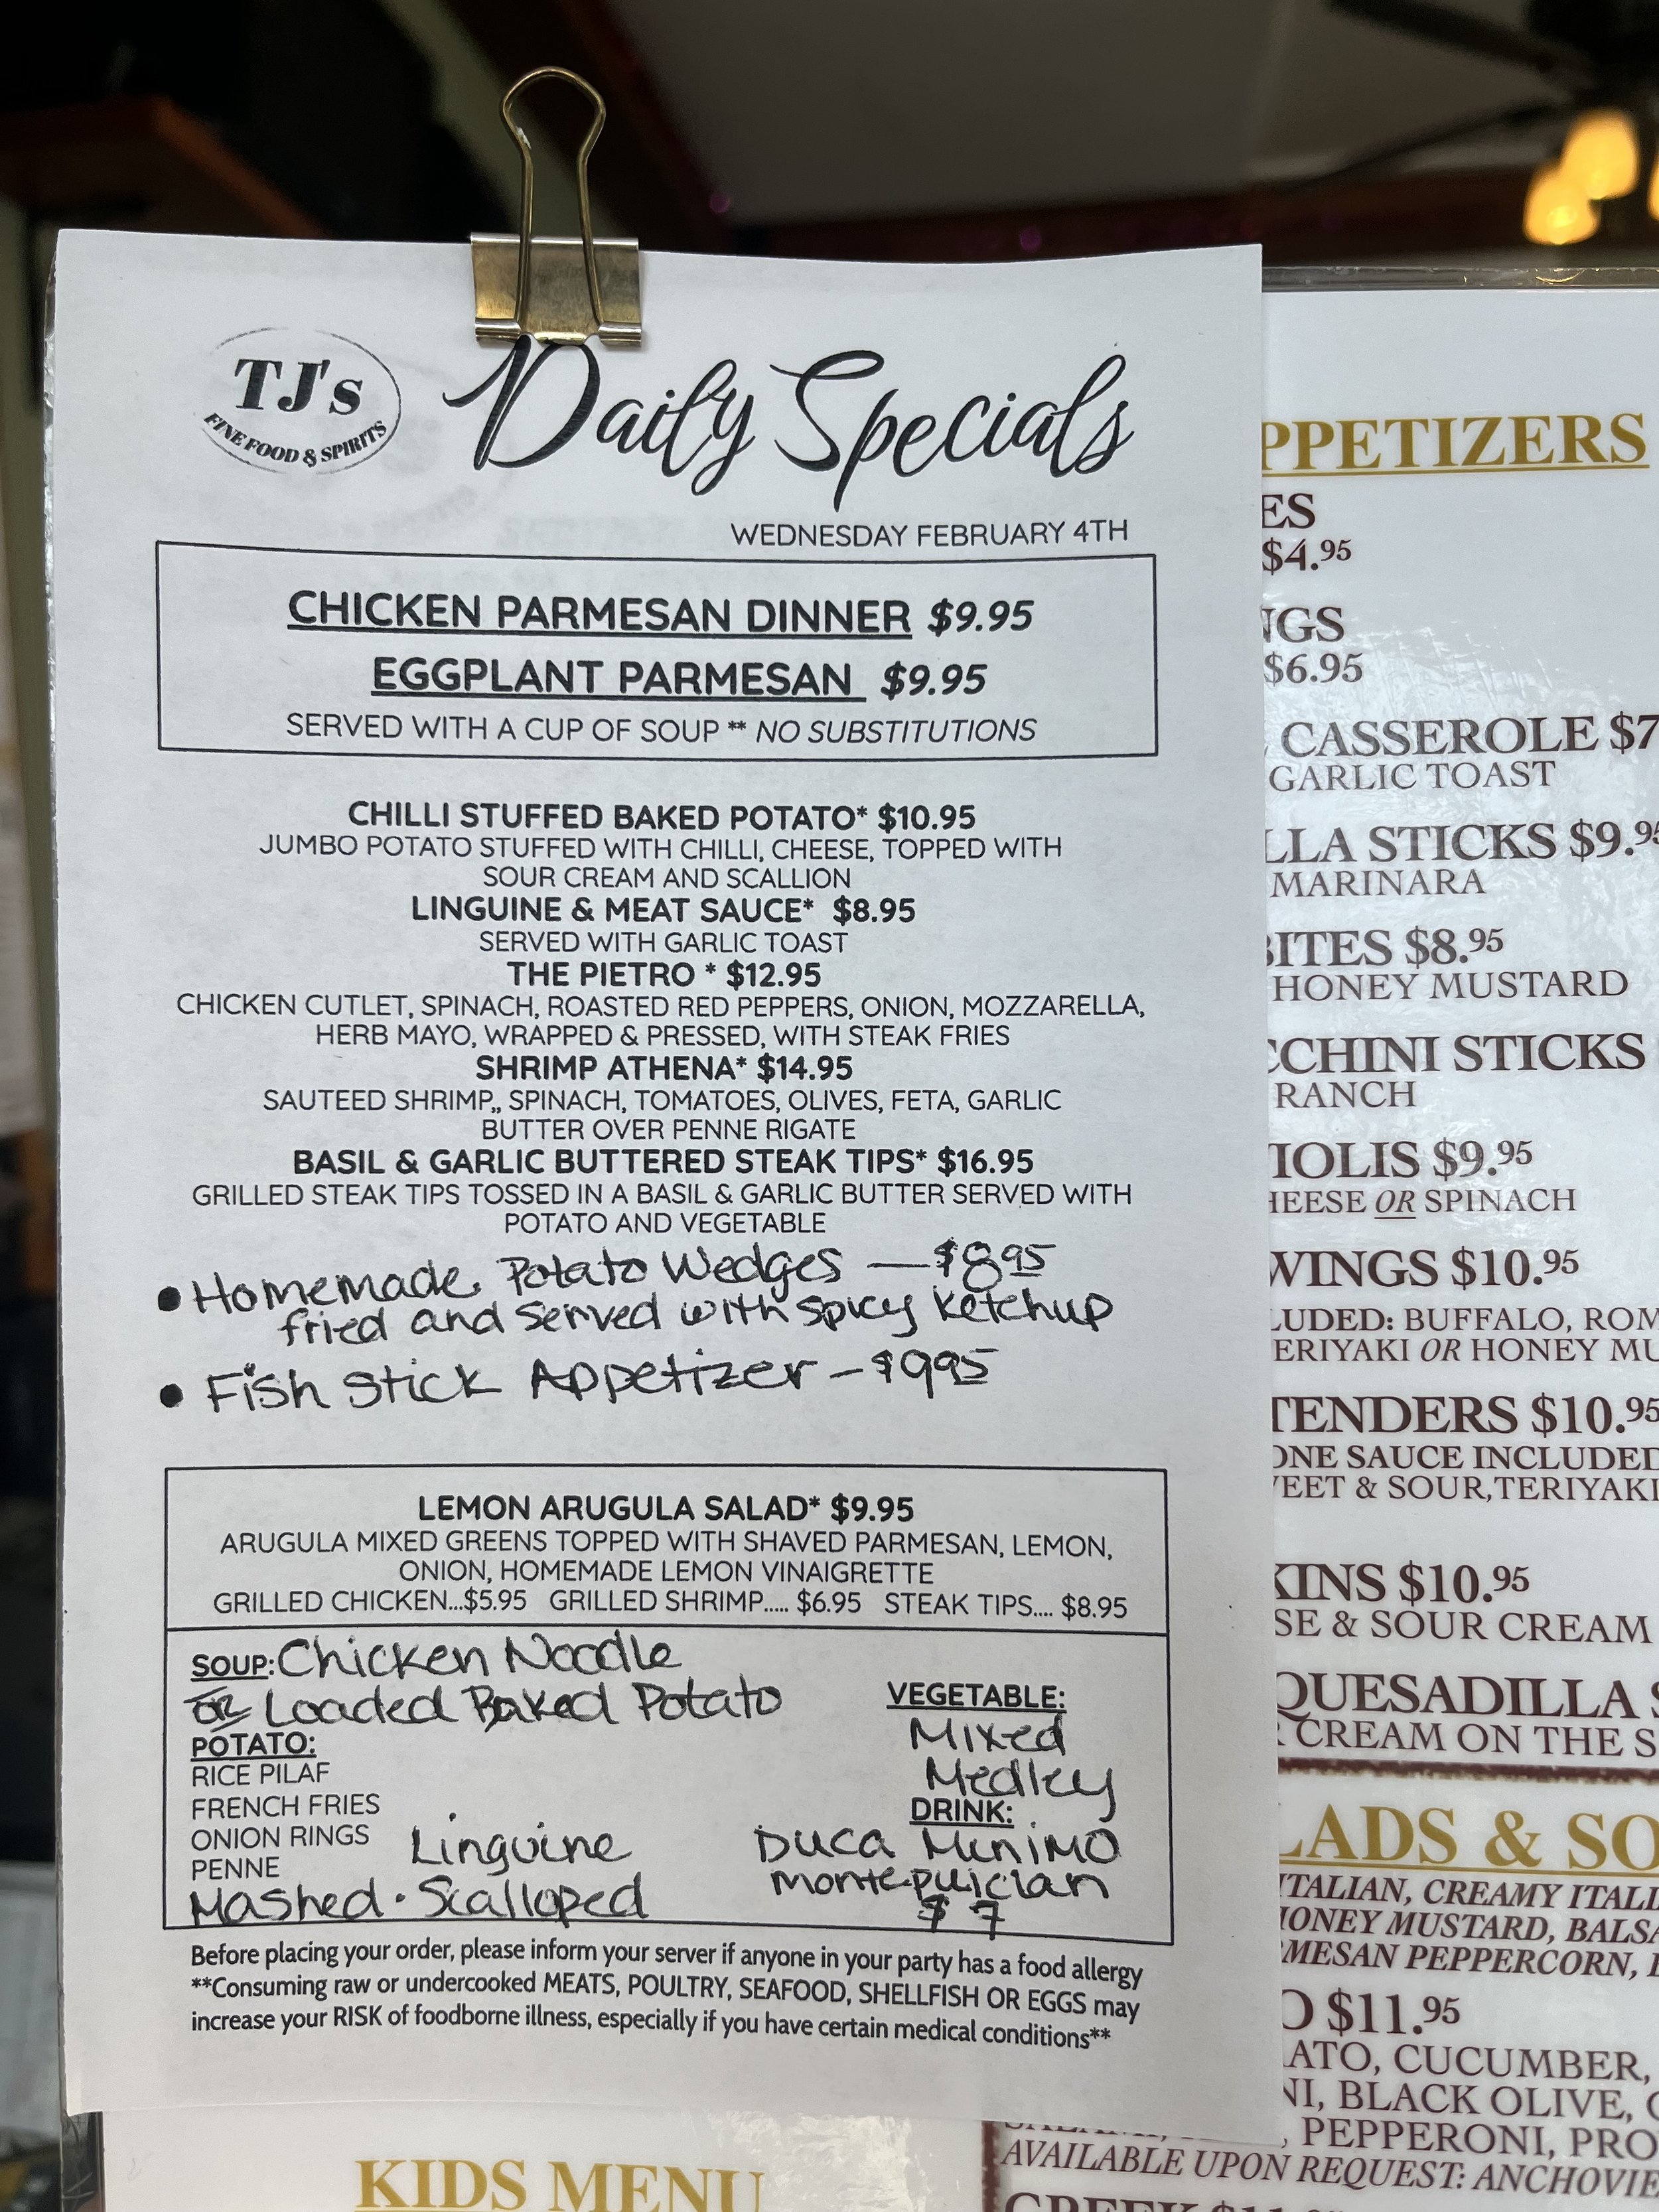 TJ's
FINE FOOD & SPIRITS
Daily Specials
WEDNESDAY FEBRUARY 4TH
CHICKEN PARMESAN DINNER $9.95
EGGPLANT PARMESAN $9.95
SERVED WITH A CUP OF SOUP ** NO SUBSTITUTIONS
CHILLI STUFFED BAKED POTATO* $10.95
JUMBO POTATO STUFFED WITH CHILLI, CHEESE, TOPPED WITH
SOUR CREAM AND SCALLION
LINGUINE & MEAT SAUCE* $8.95
SERVED WITH GARLIC TOAST
THE PIETRO * $12.95
CHICKEN CUTLET, SPINACH, ROASTED RED PEPPERS, ONION, MOZZARELLA,
HERB MAYO, WRAPPED & PRESSED, WITH STEAK FRIES
SHRIMP ATHENA* $14.95
SAUTEED SHRIMP,, SPINACH, TOMATOES, OLIVES, FETA, GARLIC
BUTTER OVER PENNE RIGATE
BASIL & GARLIC BUTTERED STEAK TIPS* $16.95
GRILLED STEAK TIPS TOSSED IN A BASIL & GARLIC BUTTER SERVED WITH
POTATO AND VEGETABLE
• Homemade Potato Wedges — $8.95
fried and served with spicy ketchup
• Fish Stick Appetizer - $9.95
LEMON ARUGULA SALAD* $9.95
ARUGULA MIXED GREENS TOPPED WITH SHAVED PARMESAN, LEMON,
ONION, HOMEMADE LEMON VINAIGRETTE
GRILLED CHICKEN...$5.95 GRILLED SHRIMP..... $6.95 STEAK TIPS.... $8.95
SOUP: Chicken Noodle
OR Loaded Baked Potato
POTATO:
RICE PILAF
FRENCH FRIES
ONION RINGS
PENNE
Linguine
Mashed · Scalloped
VEGETABLE:
Mixed
Medley
DRINK:
Duca Minimo
Montepulcian
$7
Before placing your order, please inform your server if anyone in your party has a food allergy
**Consuming raw or undercooked MEATS, POULTRY, SEAFOOD, SHELLFISH OR EGGS may
increase your RISK of foodborne illness, especially if you have certain medical conditions**
KIDS MENU
PPETIZERS
ES
$4.95
NGS
$6.95
CASSEROLE $7
GARLIC TOAST
LLA STICKS $9.95
MARINARA
BITES $8.95
HONEY MUSTARD
CCHINI STICKS
RANCH
IOLIS $9.95
HEESE OR SPINACH
WINGS $10.95
LUDED: BUFFALO, ROM
ERIYAKI OR HONEY MU
TENDERS $10.95
ONE SAUCE INCLUDED
EET & SOUR,TERIYAKI
KINS $10.95
SE & SOUR CREAM
QUESADILLA
CREAM ON THE S
LADS & SO
ITALIAN, CREAMY ITALI
HONEY MUSTARD, BALSA
MESAN PEPPERCORN,
O $11.95
ATO, CUCUMBER,
NI, BLACK OLIVE,
PEPPERONI, PRO
AVAILABLE UPON REQUEST: ANCHOVIE
GREEK